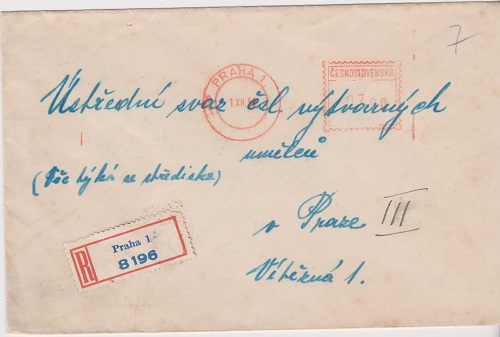 7
PRAHA 1
1 XII
ČESKOSLOVENSKO
Ústřední svaz čsl. výtvarných
umělců
(Věc týká se střediska)
v Praze III
Vítězná 1.
R
Praha 1
8196